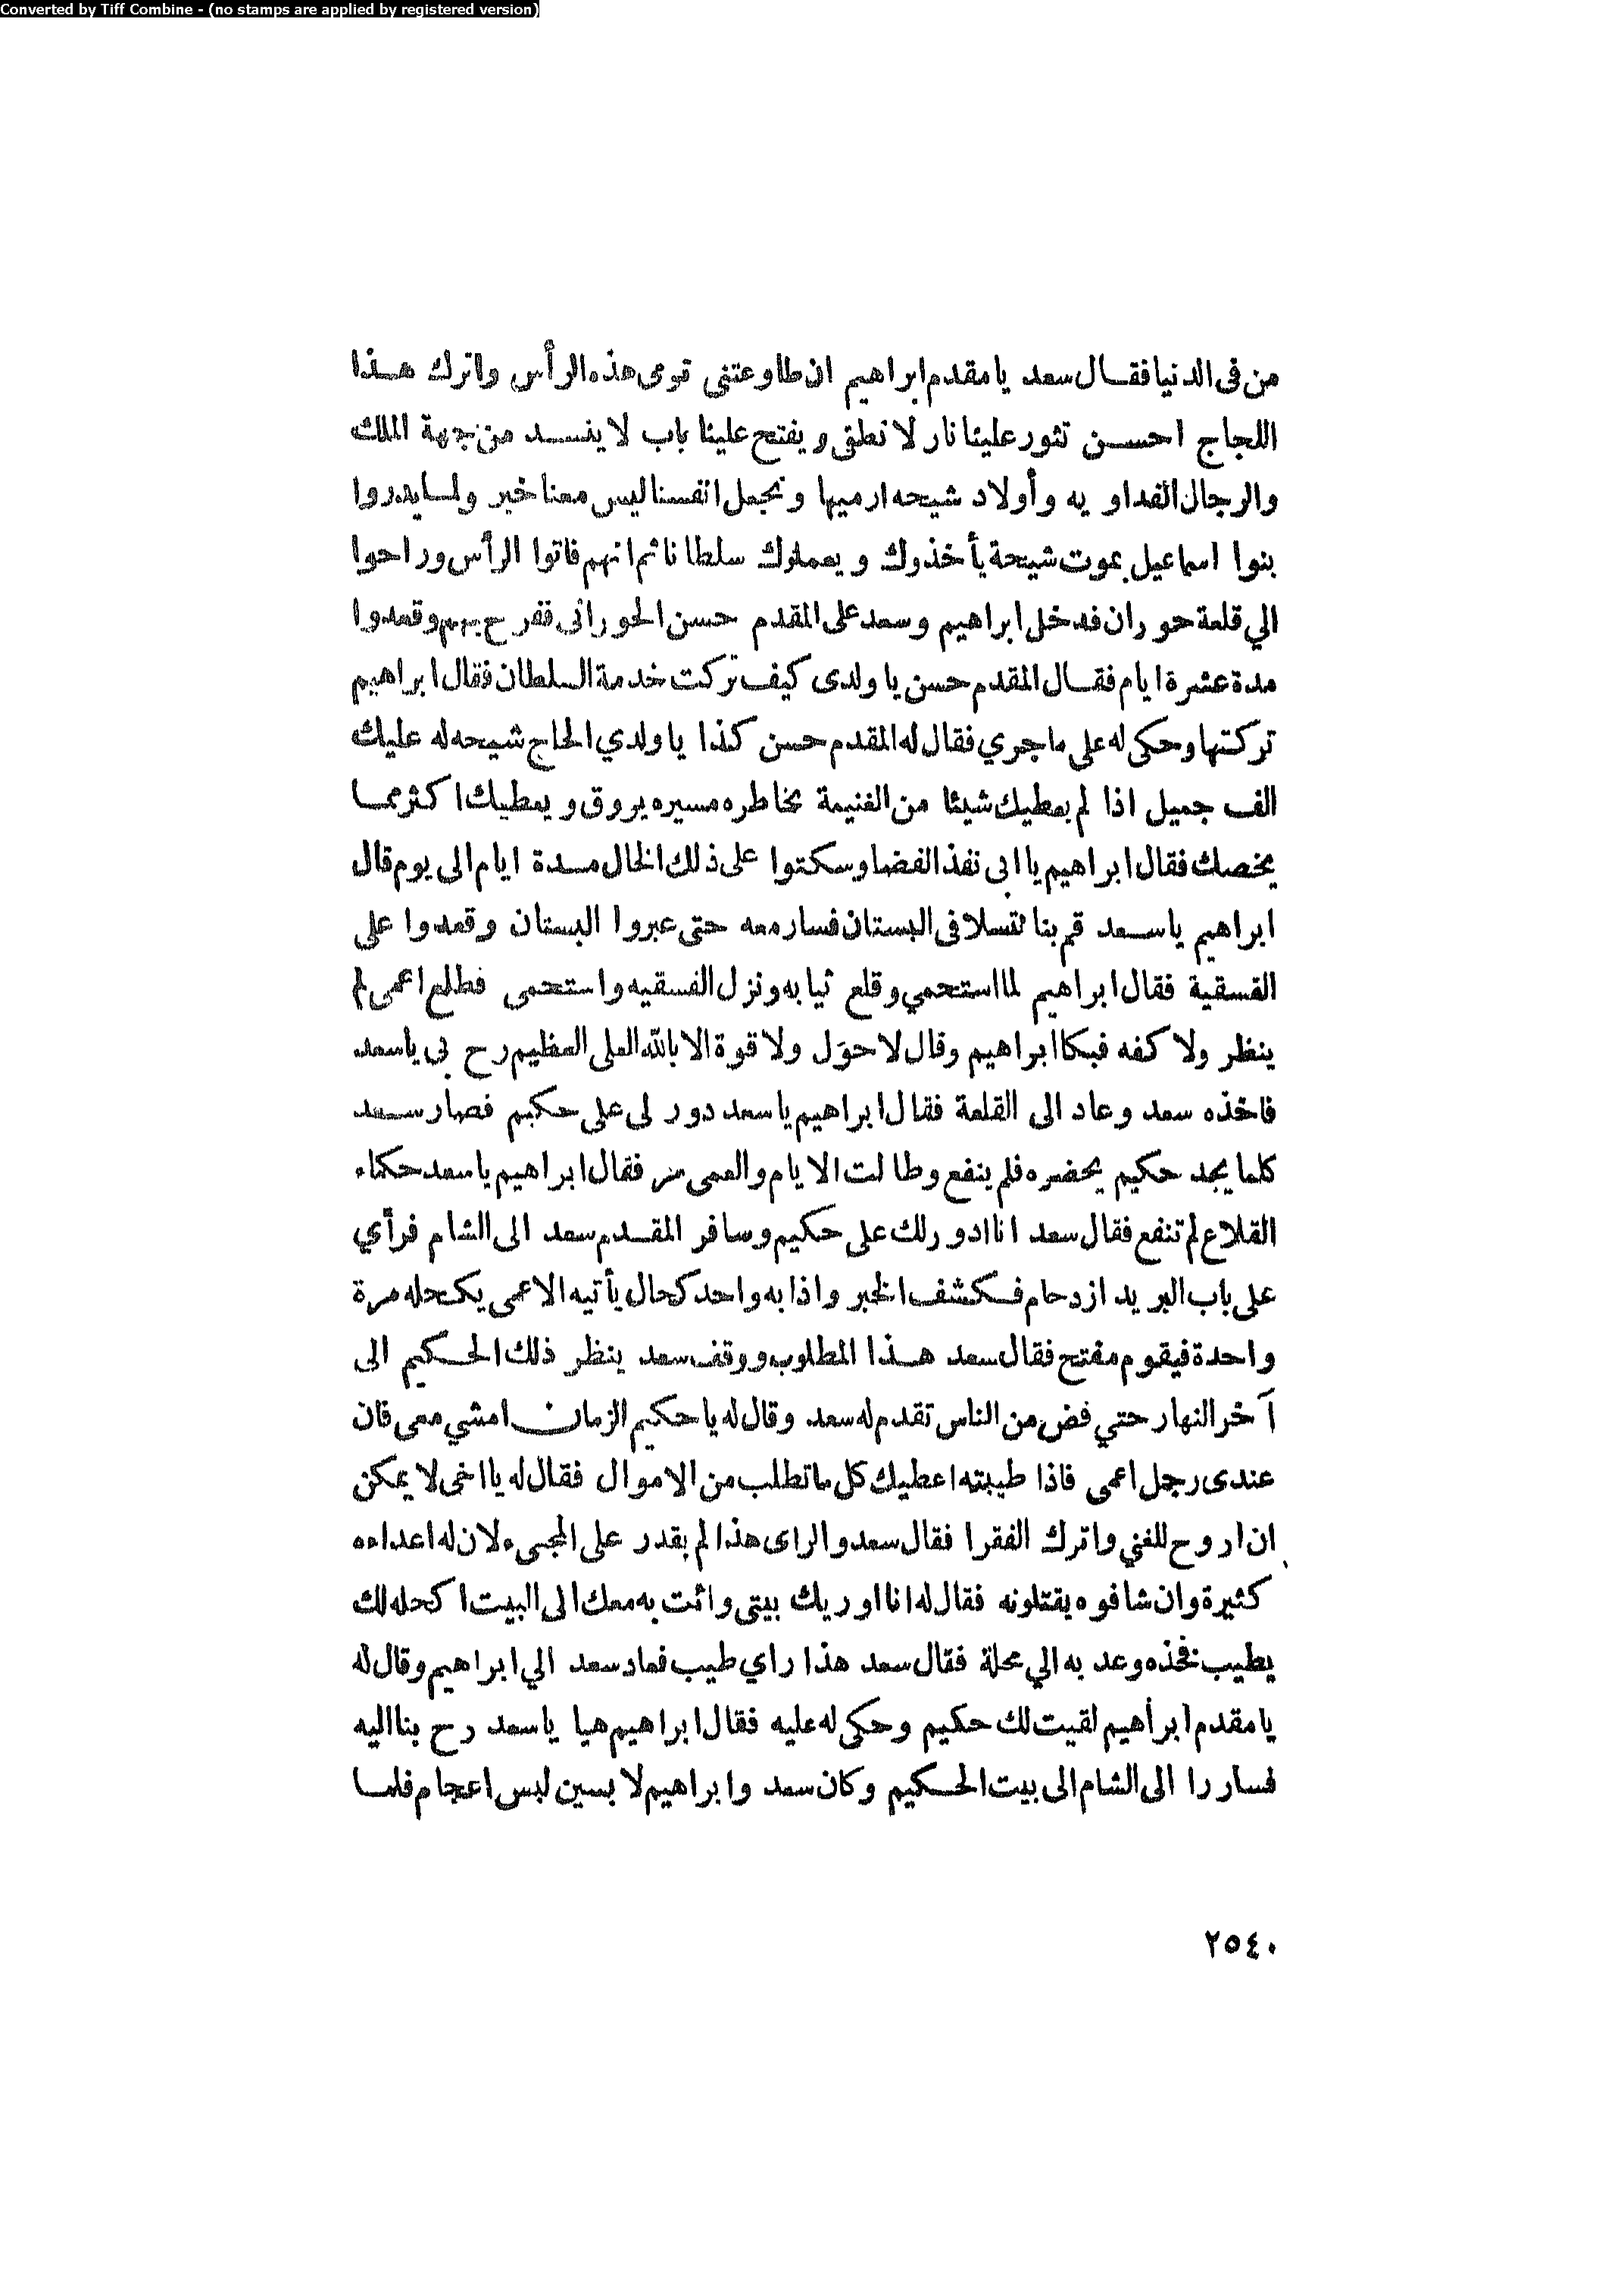 Converted by Tiff Combine - (no stamps are applied by registered version)
من فى الدنيا فقال سعد يا مقدم ابراهيم ان طاوعتنى قومى هذه الرأس واترك هذا
اللجاج احسن تثور علينا نار لا تطفى ويفتح علينا باب لا ينسد من جهة الملك
والرجال الفداويه وأولاد شيحه ارميها ونجعل انفسنا ليس معنا خبر ولما يدروا
بنوا اسماعيل بموت شيحة يأخذوك ويعملوك سلطانا ثم انهم فاتوا الرأس وراحوا
الي قلعة حوران فدخل ابراهيم وسعد على المقدم حسن الحورانى ففرح بهم وقعدوا
مدة عشرة ايام فقال المقدم حسن يا ولدى كيف تركت خدمة السلطان فقال ابراهيم
تركتها وحكى له على ما جري فقال له المقدم حسن كذا يا ولدي الحاج شيحه له عليك
الف جميل اذا لم يعطيك شيئا من الغنيمة بخاطره مسيره يروق ويعطيك اكثر مما
يخصك فقال ابراهيم يا ابى نفذ القضا وسكتوا على ذلك الحال مدة ايام الى يوم قال
ابراهيم يا سعد قم بنا نتسلا فى البستان فسار معه حتى عبروا البستان وقعدوا على
الفسقية فقال ابراهيم لما استحمي وقلع ثيابه ونزل الفسقيه واستحمى فطلع اعمى لم
ينظر ولا كفه فبكا ابراهيم وقال لا حول ولا قوة الا بالله العلى العظيم رح بى يا سعد
فاخذه سعد وعاد الى القلعة فقال ابراهيم يا سعد دور لى على حكيم فصار سعد
كلما يجد حكيم يحضره فلم ينفع وطالت الايام والعمى فقال ابراهيم يا سعد حكماء
القلاع لم تنفع فقال سعد انا ادور لك على حكيم وسافر المقدم سعد الى الشام فرأي
على باب البريد ازدحام فكشف الخبر واذا به واحد كحال يأتيه الاعمى يكحله مرة
واحدة فيقوم مفتح فقال سعد هذا المطلوب ووقف سعد ينظر ذلك الحكيم الى
آخر النهار حتي فض من الناس تقدم له سعد وقال له يا حكيم الزمان امشي معى فان
عندى رجل اعمى فاذا طيبته اعطيك كل ما تطلب من الاموال فقال له يا اخى لا يمكن
ان اروح للغني واترك الفقرا فقال سعد والراى هذا لم يقدر على المجىء لان له اعداءه
كثيرة وان شافوه يقتلونه فقال له انا اوريك بيتى وائت به معك الى البيت اكحله لك
يطيب فخذه وعد به الي محلة فقال سعد هذا راي طيب فعاد سعد الي ابراهيم وقال له
يا مقدم ابرأهيم لقيت لك حكيم وحكى له عليه فقال ابراهيم هيا يا سعد رح بنا اليه
فساررا الى الشام الى بيت الحكيم وكان سعد وابراهيم لابسين لبس اعجام فلما
٢٥٤٠